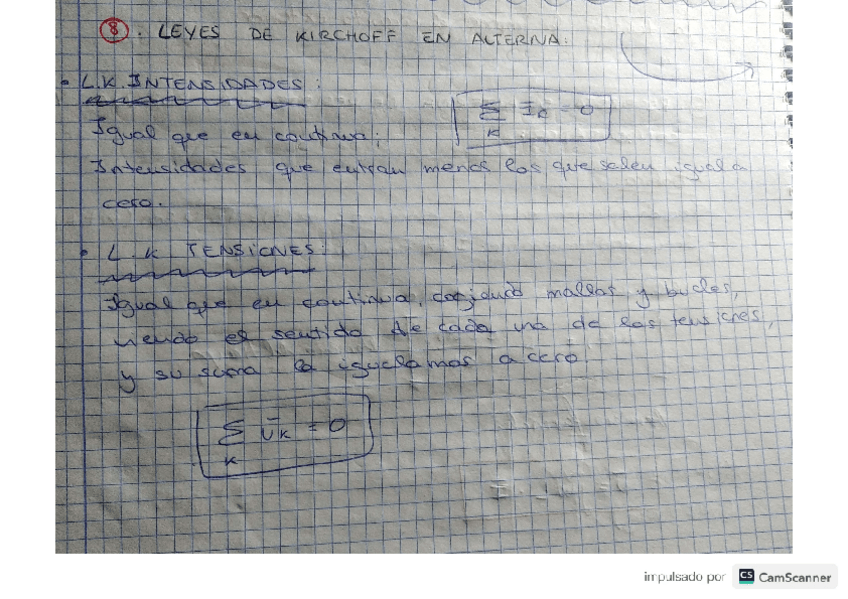 8. LEYES DE KIRCHOFF EN ALTERNA:
• L.K. INTENSIDADES:
Σ Ik = 0
K
Igual que en continua;
Intensidades que entran menos las que salen igual a
cero.
• L K TENSIONES:
Igual que en continua, cogiendo mallas y bucles,
viendo el sentido de cada una de las tensiones,
y su suma la igualamos a cero.
Σ Uk = 0
K
impulsado por CS CamScanner